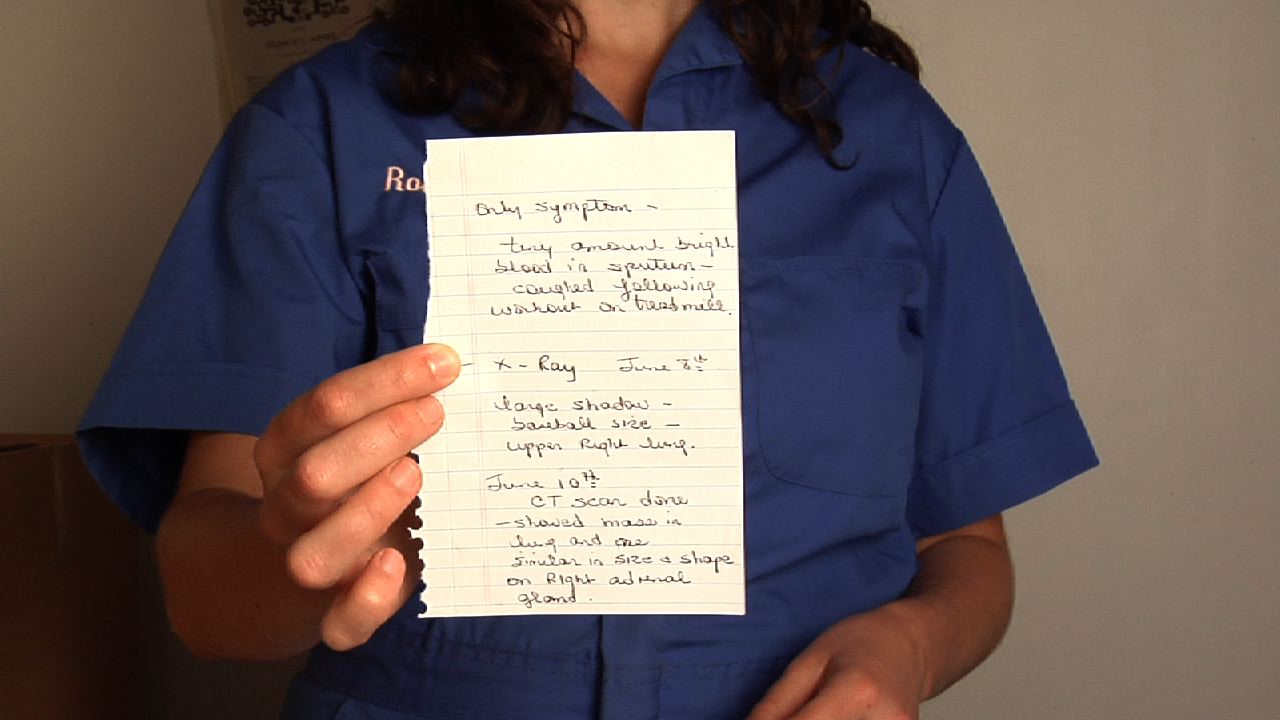 Ro
Only symptom -
tiny amount bright
blood in sputum -
coughed following
workout on treadmill.
- X-Ray June 8th
large shadow -
baseball size -
upper Right lung.
June 10th
CT scan done
- showed mass in
lung and one
similar in size & shape
on Right adrenal
gland.